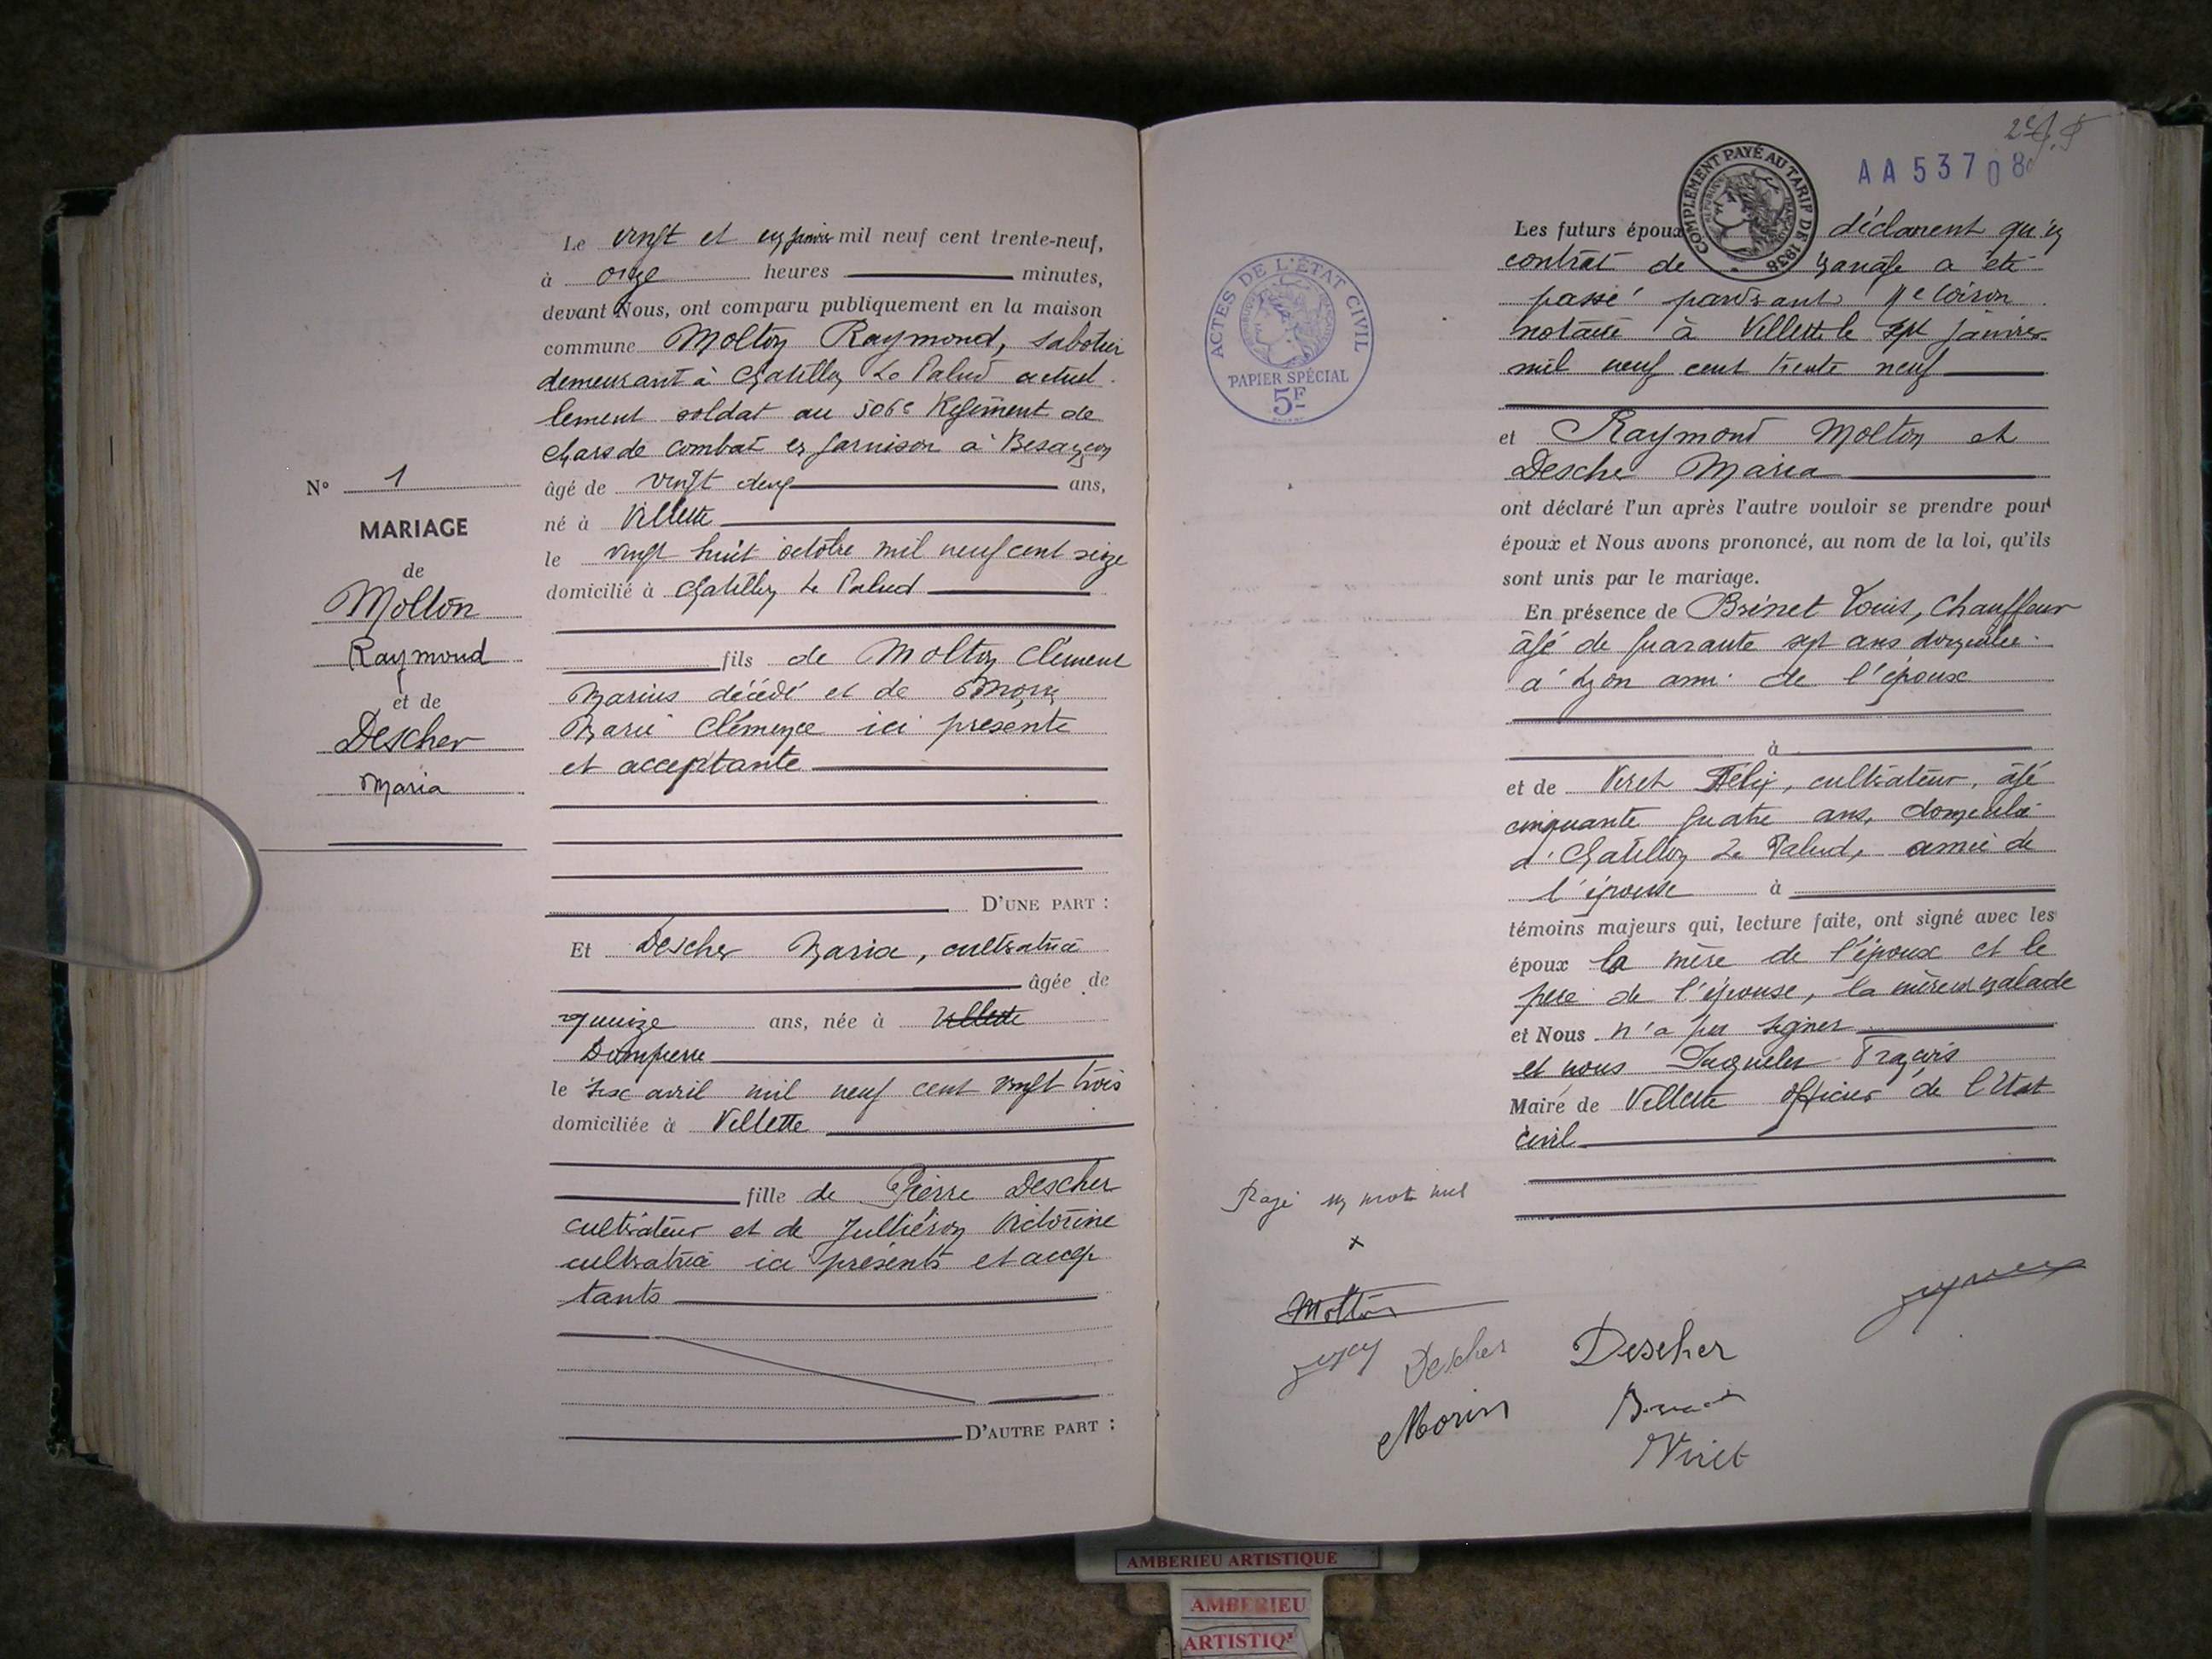 Le vingt et un janvier mil neuf cent trente-neuf,
à onze heures minutes,
devant Nous, ont comparu publiquement en la maison
commune Molton Raymond, sabotier
demeurant à Chatillon Le Palud actuel
lement soldat au 506e Regiment de
chars de combat en garnison à Besançon
âgé de vingt deux ans,
né à Villette
le vingt huit octobre mil neuf cent seize
domicilié à Chatillon Le Palud
fils de Molton Clément
Marius décédé et de Morin
Marie Clémence ici présente
et acceptante
D'UNE PART :
Et Descher Maria, cultivatrice
âgée de
quinze ans, née à Villette
Dompierre
le six avril mil neuf cent vingt trois
domiciliée à Villette
fille de Pierre Descher
cultivateur et de Jullièron Victorine
cultivatrice ici présents et accep
tants
D'AUTRE PART :
N° 1
MARIAGE
de
Molton
Raymond
et de
Descher
Maria
AA 53708
COMPLÉMENT PAYÉ AU TARIF DE 1938
ACTES DE L'ÉTAT CIVIL
PAPIER SPÉCIAL
5F
Les futurs époux déclarent qu'un
contrat de mariage a été
passé pardevant Me Coiron
notaire à Villette le sept janvier
mil neuf cent trente neuf
et Raymond Molton et
Descher Maria
ont déclaré l'un après l'autre vouloir se prendre pour
époux et Nous avons prononcé, au nom de la loi, qu'ils
sont unis par le mariage.
En présence de Brinet Louis, Chauffeur
âgé de quarante sept ans domicilié
à Lyon ami de l'époux
à
et de Viret Félix, cultivateur, âgé
cinquante quatre ans, domicilié
à Chatillon Le Palud, ami de
l'épouse à
témoins majeurs qui, lecture faite, ont signé avec les
époux la mère de l'époux et le
père de l'épouse, la mère malade
et Nous n'a pu signer
et nous Juguelet François
Maire de Villette officier de l'Etat
civil
Rayé un mot nul
x
Molton
Descher
Descher
Morin
Viret
AMBERIEU ARTISTIQUE
AMBERIEU
ARTISTIQ